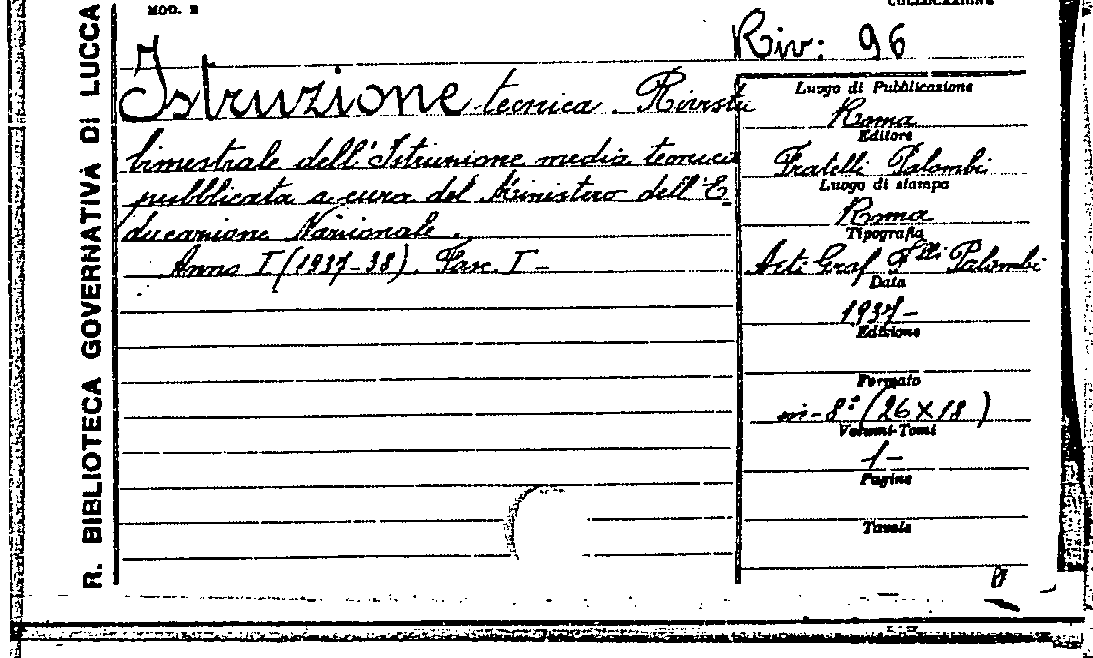 MOD. B
COLLOCAZIONE
R. BIBLIOTECA GOVERNATIVA DI LUCCA
Riv: 96
Istruzione tecnica. Rivista
bimestrale dell'Istruzione media tecnica
pubblicata a cura del Ministero dell'E
ducazione Nazionale.
Anno I (1937-38). Fasc. I-
Luogo di Pubblicazione
Roma
Editore
Fratelli Palombi
Luogo di stampa
Roma
Tipografia
Arti Graf. F.lli Palombi
Data
1937-
Edizione
Formato
in-8º (26X18)
Volumi-Tomi
1-
Pagine
Tavole